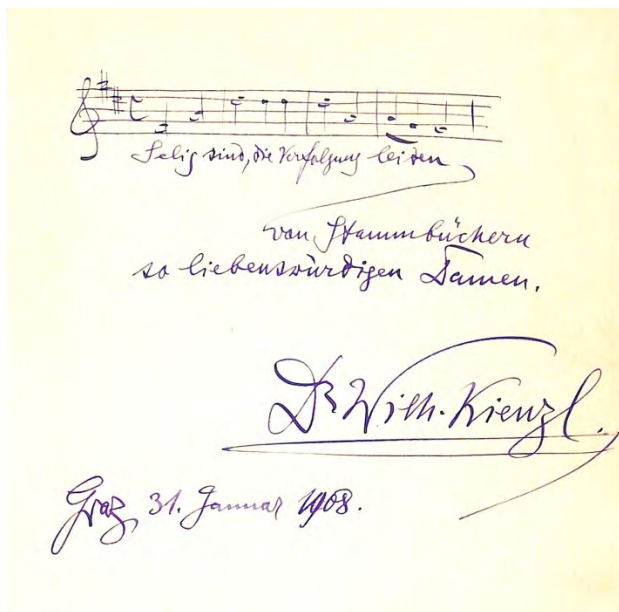 Selig sind, die Verfolgung leiden
von Stammbüchern
so liebenswürdigen Damen.
Dr Wilh. Kienzl.
Graz, 31. Januar 1908.